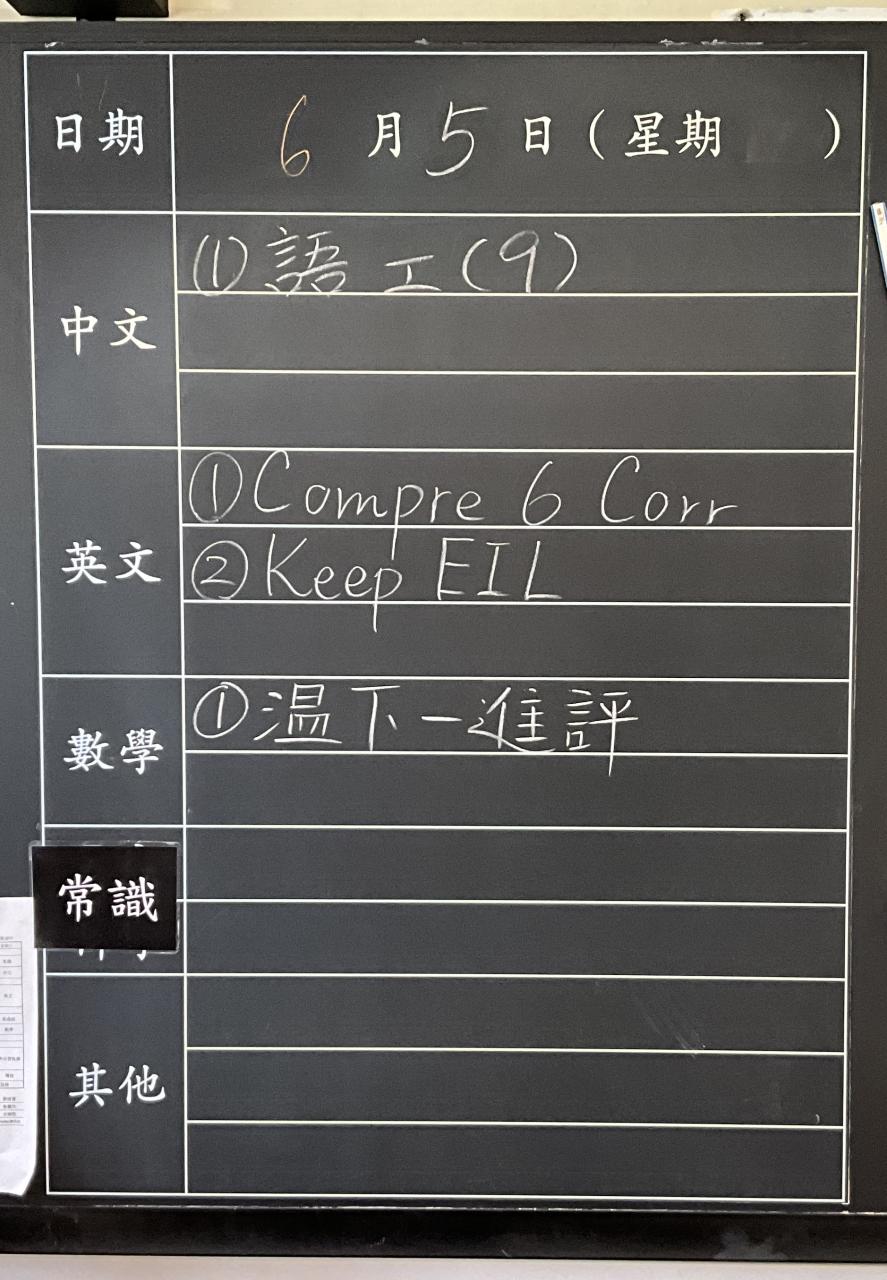 日期 6 月 5 日 ( 星期 )
中文 (1) 語工(9)
英文 ① Compre 6 Corr
② Keep EIL
數學 ① 温下一進評
常識
其他